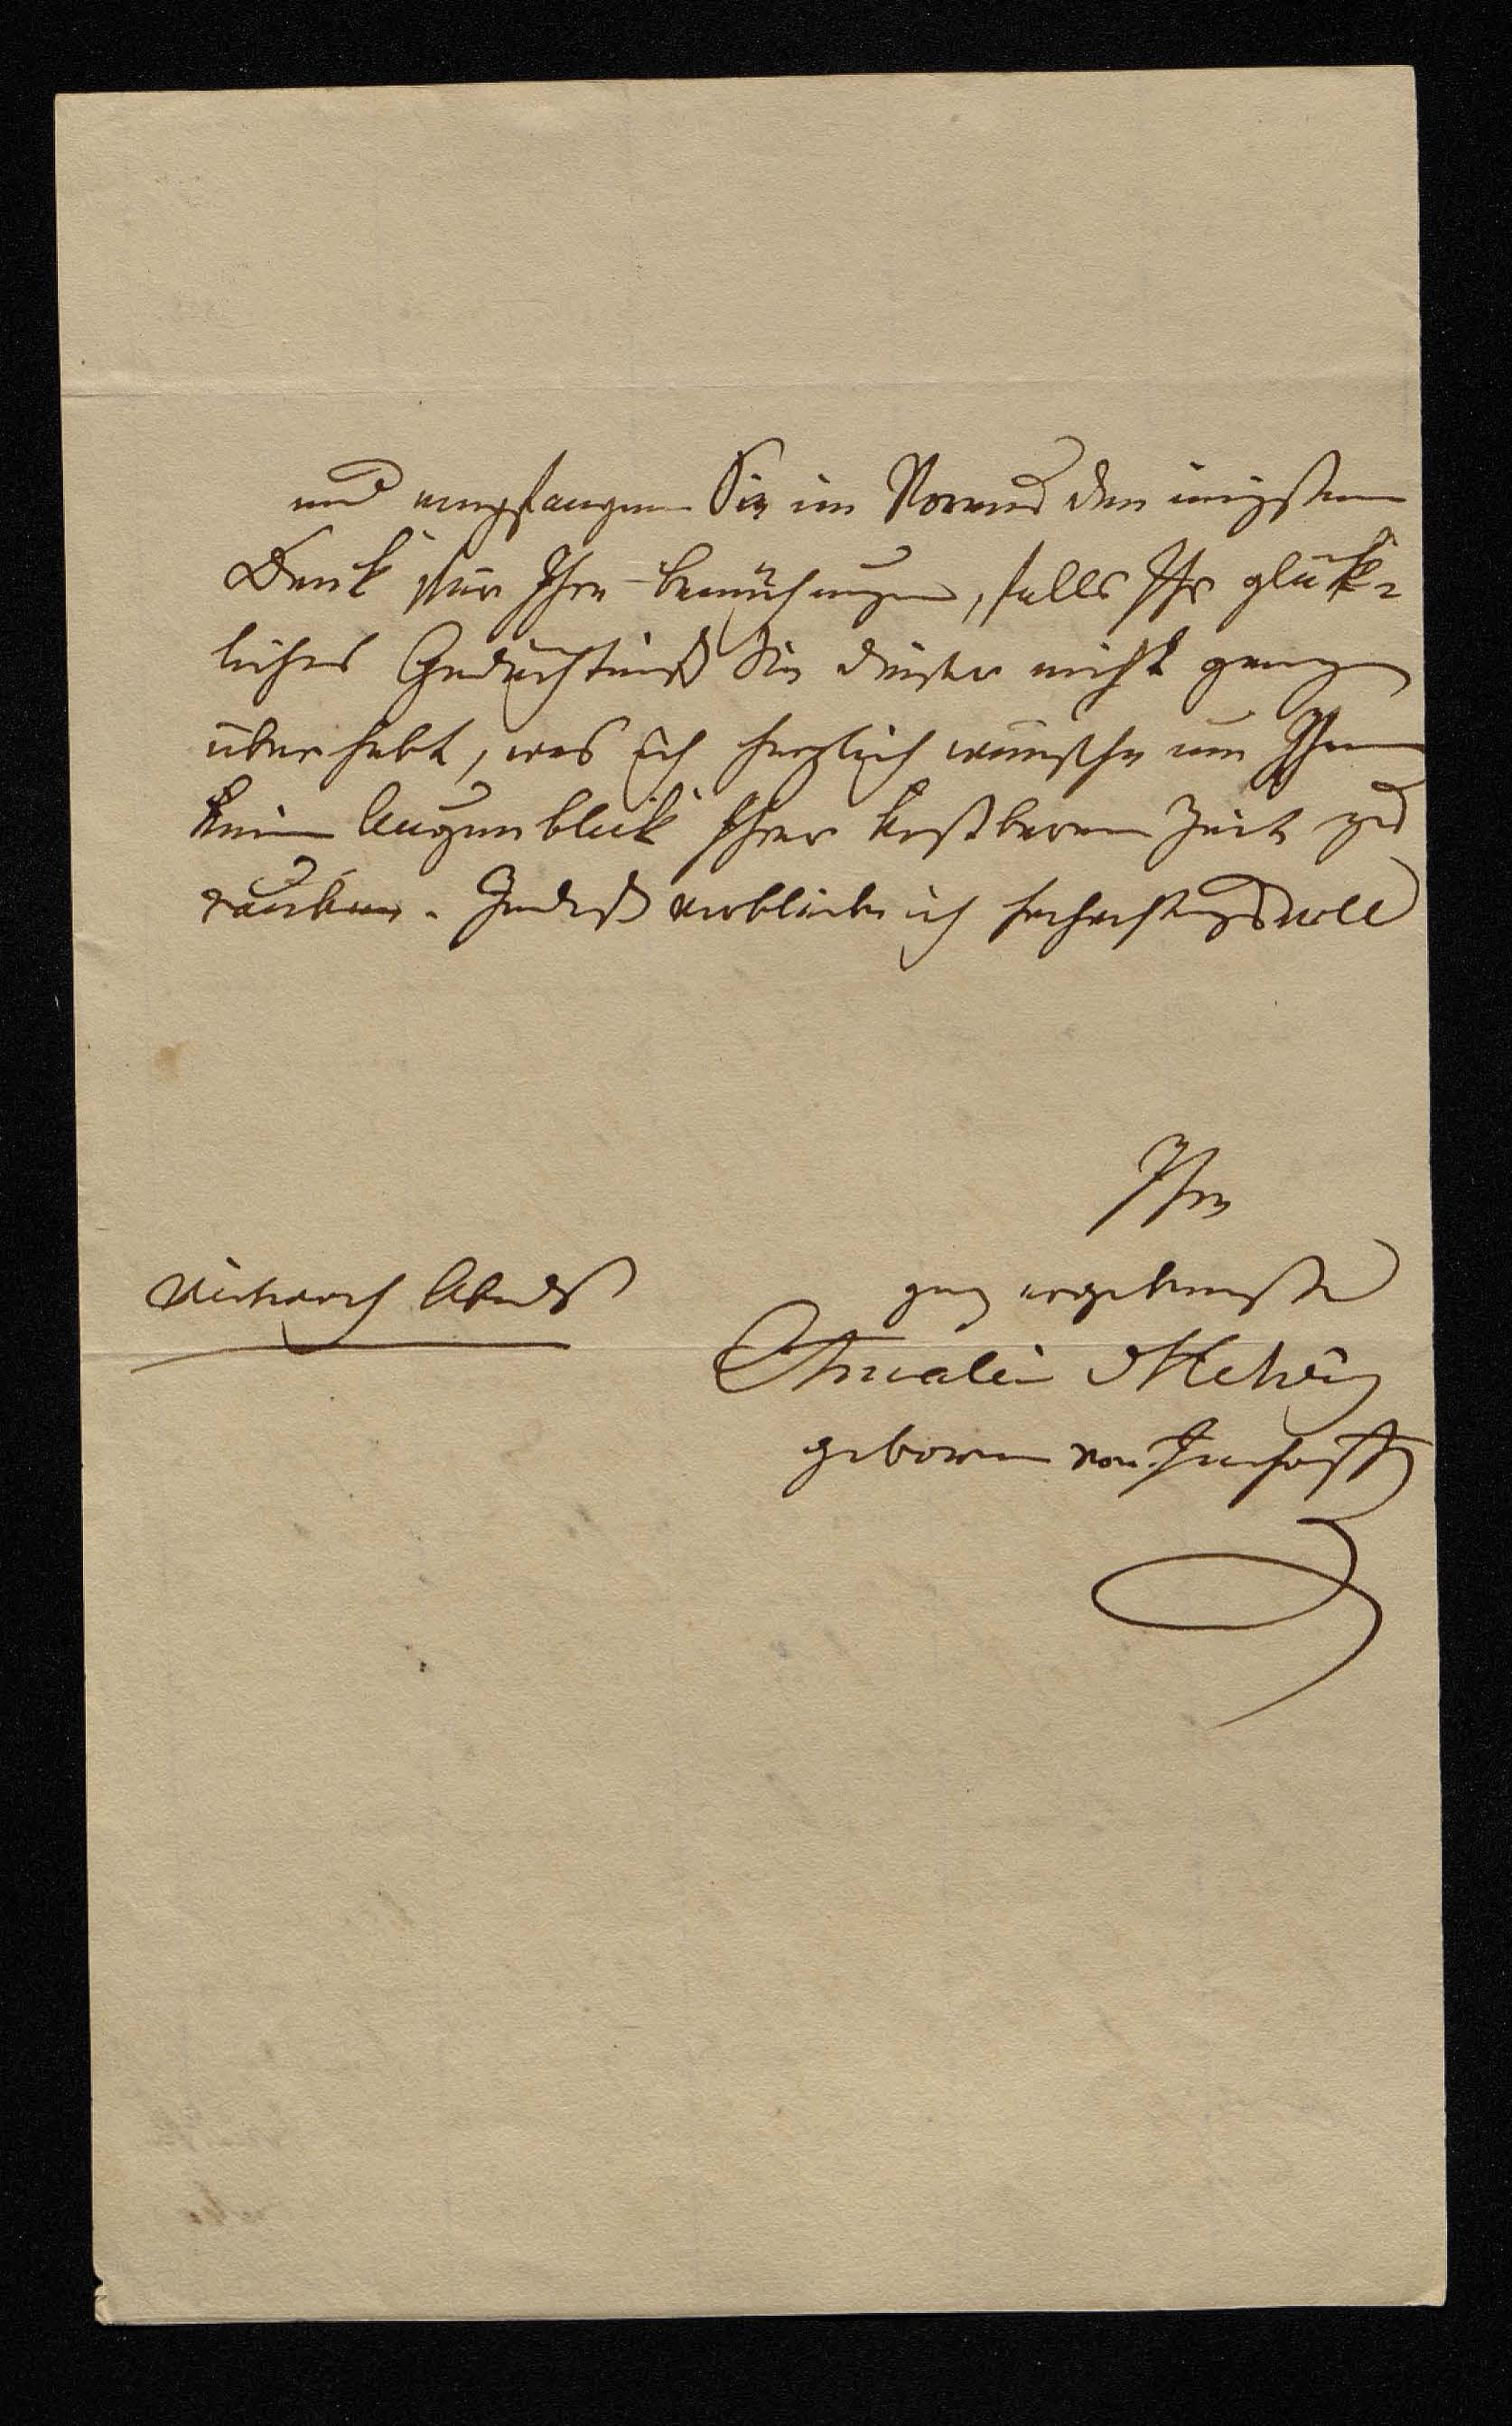 und empfangen Sie im Voraus den innigsten
Dank für Ihre Bemühungen, falls Ihr glük-
liches Gedächtniß Sie dieser nicht ganz
überhebt, was ich herzlich wünsche um Ihnen
keinen Augenblick Ihrer kostbaren Zeit zu
rauben. Indeß verbleibe ich hochachtungsvoll
Ihre
Mittwoch Abends
ganz ergebenste
Amalie Helvig
geborne von Imhoff